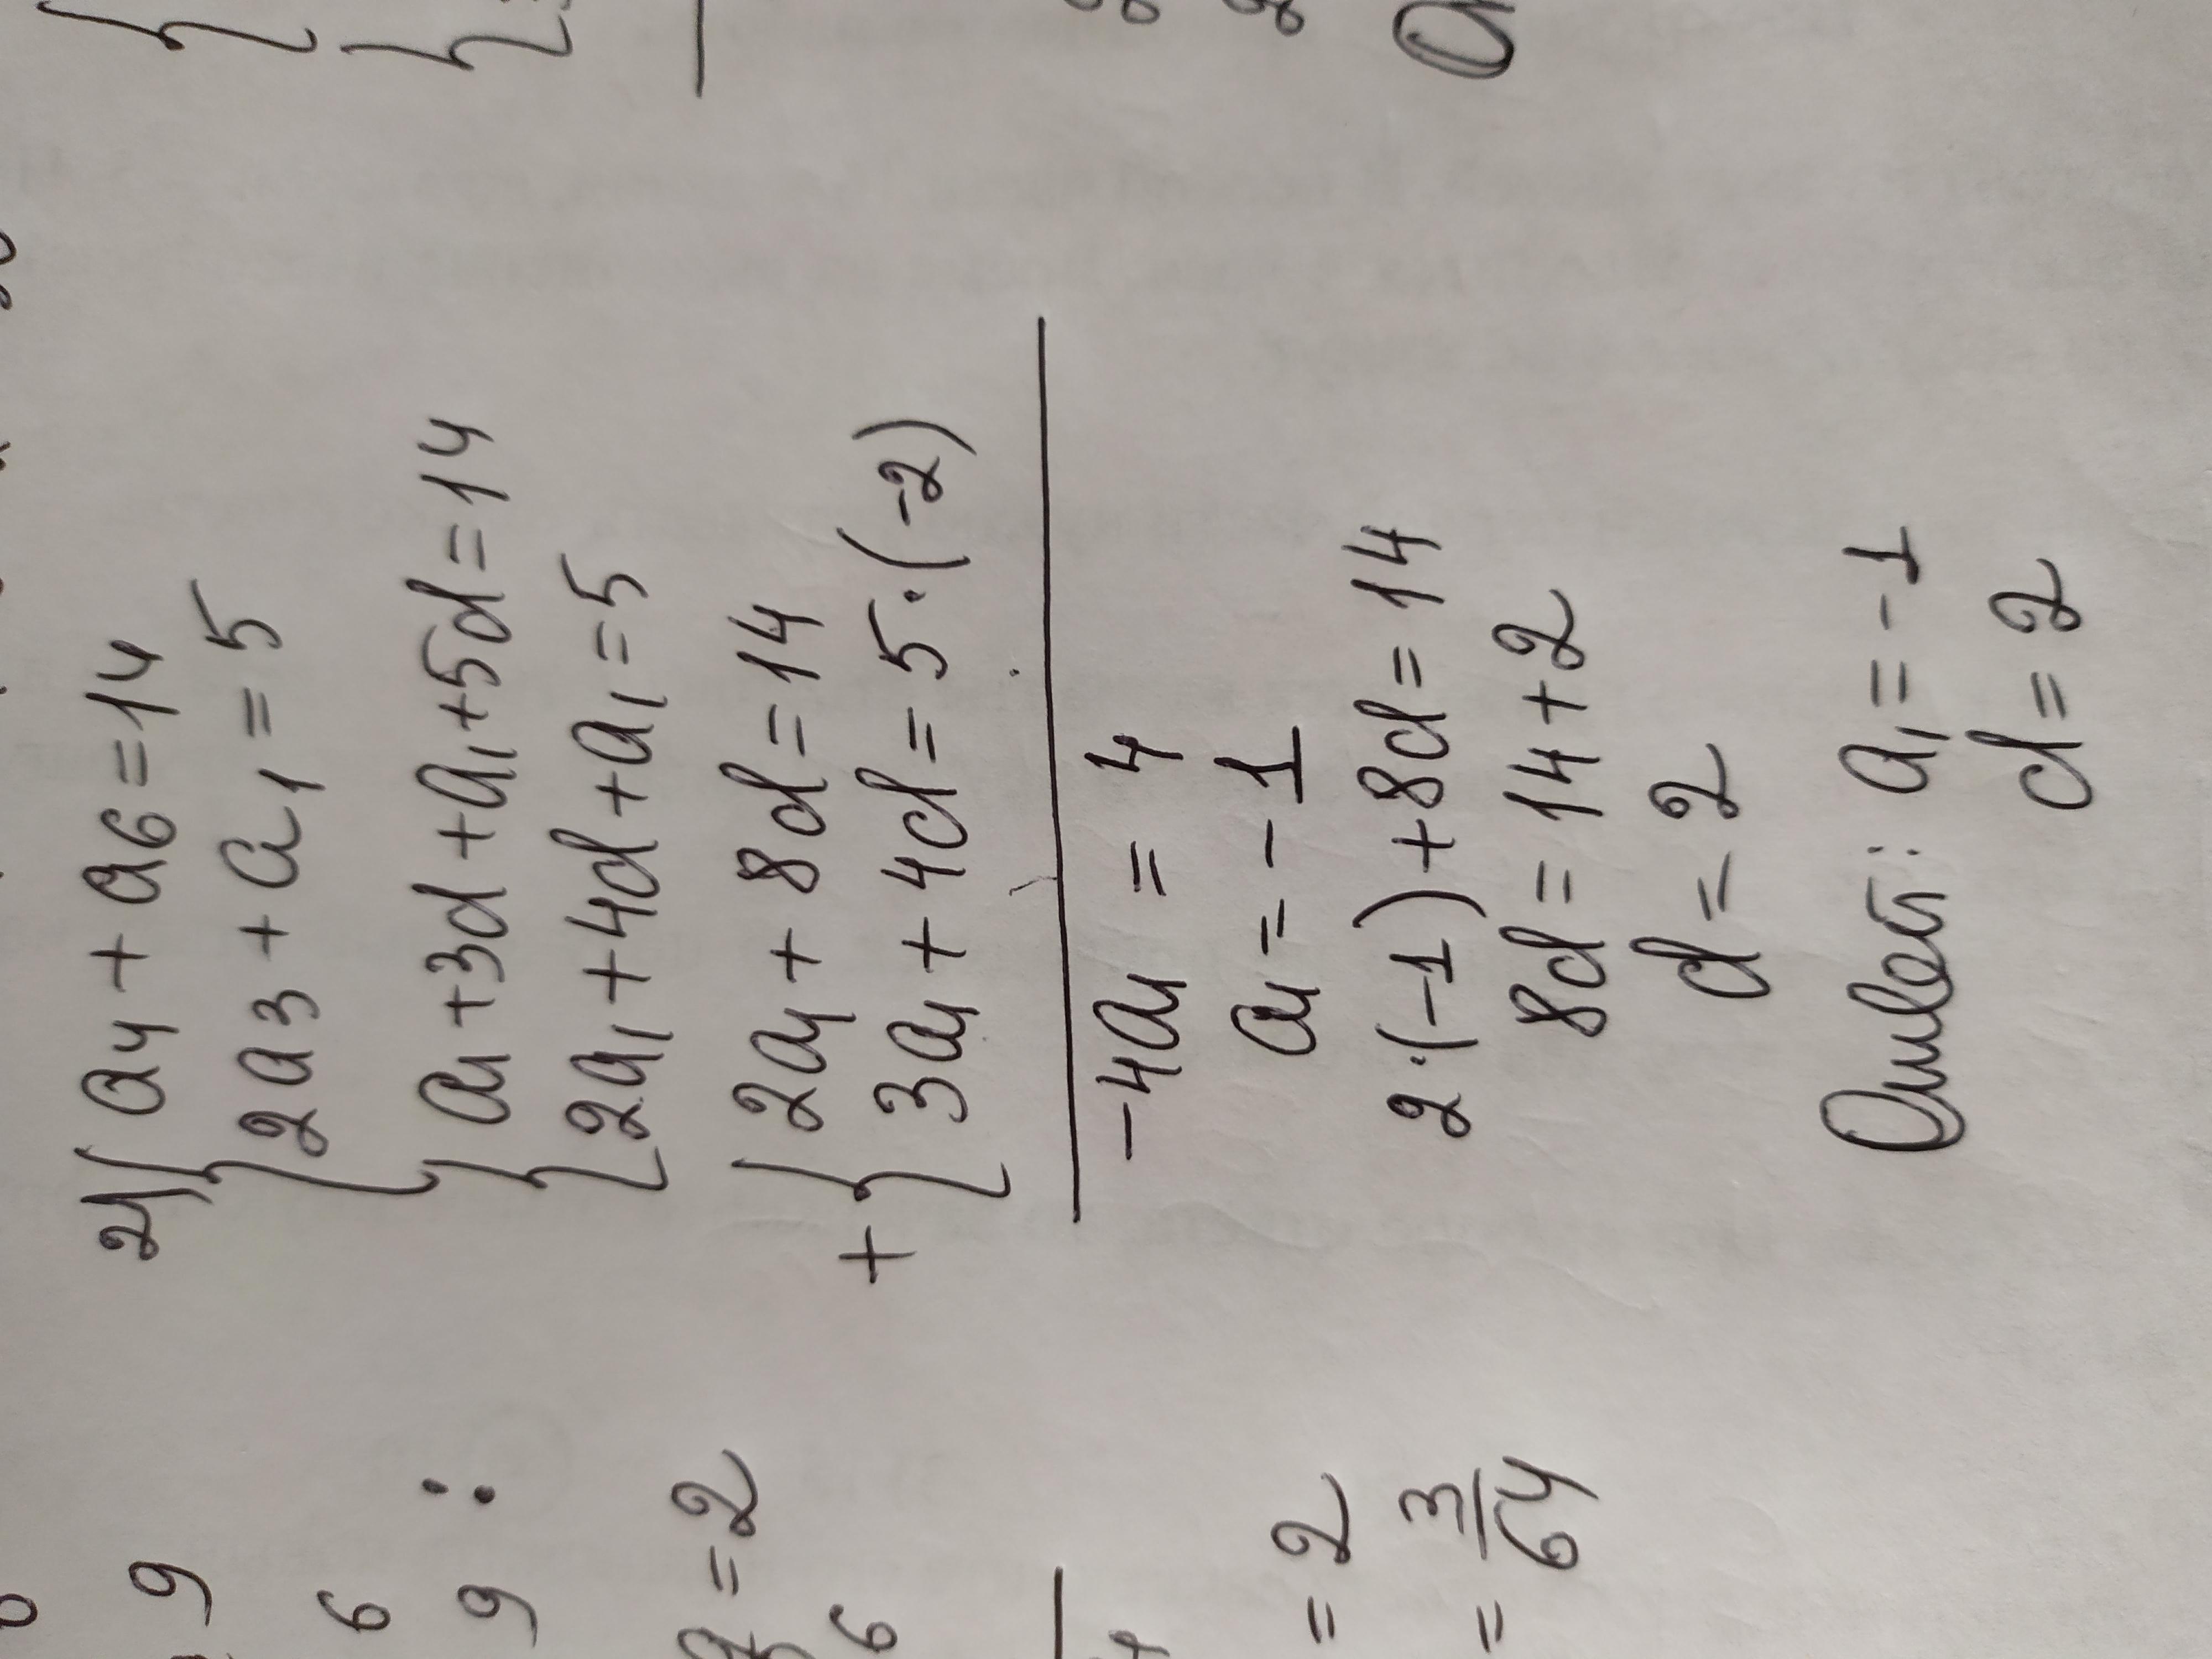 2) { a₄ + a₆ = 14
2a₃ + a₁ = 5
{ a₁ + 3d + a₁ + 5d = 14
2a₁ + 4d + a₁ = 5
+ { 2a₁ + 8d = 14
3a₁ + 4d = 5 · (-2)
-4a₁ = 4
a₁ = -1
2·(-1) + 8d = 14
8d = 14 + 2
d = 2
Ответ: a₁ = -1
d = 2
9
6
9 :
= 2
6
= 2
= 3/64